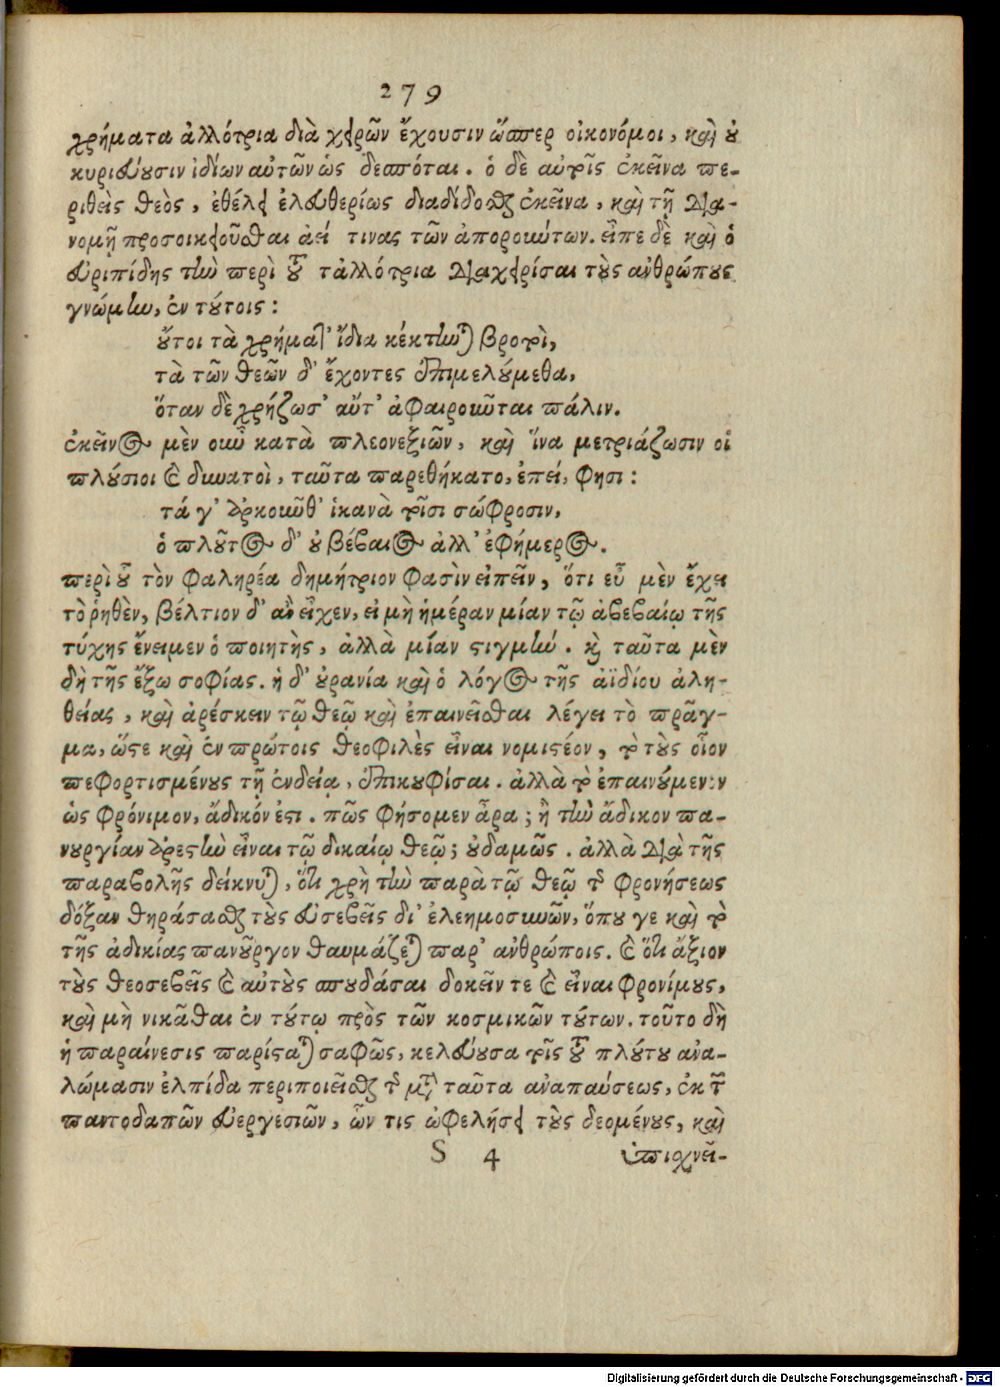 279
χρήματα ἀλλότρια διὰ χειρῶν ἔχουσιν ὥσπερ οἰκονόμοι, καὶ οὐ
κυριεύουσιν ἰδίων αὐτῶν ὡς δεσπόται. ὁ δὲ αὐτοῖς ἐκεῖνα πε-
ριθεὶς θεὸς, ἐθέλει ἐλευθερίως διαδίδοσθαι ἐκεῖνα, καὶ τῇ δια-
νομῇ προσοικειοῦσθαι ἀεί τινας τῶν ἀπορούντων. εἶπε δὲ καὶ ὁ
εὐριπίδης τὴν περὶ τοῦ τἀλλότρια διαχειρίσαι τοὺς ἀνθρώπους
γνώμην, ἐν τούτοις:
οὔτοι τὰ χρήματ' ἴδια κέκτηνται βροτοὶ,
τὰ τῶν θεῶν δ' ἔχοντες ἐπιμελούμεθα,
ὅταν δὲ χρήζωσ' αὔτ' ἀφαιροῦνται πάλιν.
ἐκεῖνος μὲν οὖν κατὰ πλεονεξιῶν, καὶ ἵνα μετριάζωσιν οἱ
πλούσιοι καὶ δυνατοὶ, ταῦτα παρεθήκατο, ἐπεί, φησι:
τά γ' ἀρκοῦνθ' ἱκανὰ τοῖσι σώφροσιν,
ὁ πλοῦτος δ' οὐ βέβαιος ἀλλ' ἐφήμερος.
περὶ οὗ τὸν φαληρέα δημήτριον φασὶν εἰπεῖν, ὅτι εὖ μὲν ἔχει
τὸ ῥηθὲν, βέλτιον δ' ἂν εἶχεν, εἰ μὴ ἡμέραν μίαν τῷ ἀβεβαίῳ τῆς
τύχης ἔνειμεν ὁ ποιητὴς, ἀλλὰ μίαν στιγμήν. καὶ ταῦτα μὲν
δὴ τῆς ἔξω σοφίας. ἡ δ' οὐρανία καὶ ὁ λόγος τῆς ἀϊδίου ἀλη-
θείας, καὶ ἀρέσκειν τῷ θεῷ καὶ ἐπαινεῖσθαι λέγει τὸ πρᾶγ-
μα, ὥστε καὶ ἐν πρώτοις θεοφιλὲς εἶναι νομιστέον, τὸ τοὺς οἷον
πεφορτισμένους τῇ ἐνδείᾳ, ἐπικουφίσαι. ἀλλὰ τὸ ἐπαινούμενον
ὡς φρόνιμον, ἄδικόν ἐστι. πῶς φήσομεν ἄρα; ἢ τὴν ἄδικον πα-
νουργίαν ἀρεστὴν εἶναι τῷ δικαίῳ θεῷ; οὐδαμῶς. ἀλλὰ διὰ τῆς
παραβολῆς δείκνυται, ὅτι χρὴ τὴν παρὰ τῷ θεῷ τῆς φρονήσεως
δόξαν θηράσασθαι τοὺς εὐσεβεῖς δι' ἐλεημοσυνῶν, ὅπου γε καὶ τὸ
τῆς ἀδικίας πανοῦργον θαυμάζεται παρ' ἀνθρώποις. καὶ ὅτι ἄξιον
τοὺς θεοσεβεῖς καὶ αὐτοὺς σπουδάσαι δοκεῖν τε καὶ εἶναι φρονίμους,
καὶ μὴ νικᾶσθαι ἐν τούτῳ πρὸς τῶν κοσμικῶν τούτων. τοῦτο δὴ
ἡ παραίνεσις παρίσταται σαφῶς, κελεύουσα τοῖς τοῦ πλούτου ἀνα-
λώμασιν ἐλπίδα περιποιεῖσθαι τῆς μετὰ ταῦτα ἀναπαύσεως, ἐκ τῶν
παντοδαπῶν εὐεργεσιῶν, ὧν τις ὠφελήσει τοὺς δεομένους, καὶ
S 4 ὑπισχνεῖ-
Digitalisierung gefördert durch die Deutsche Forschungsgemeinschaft - DFG